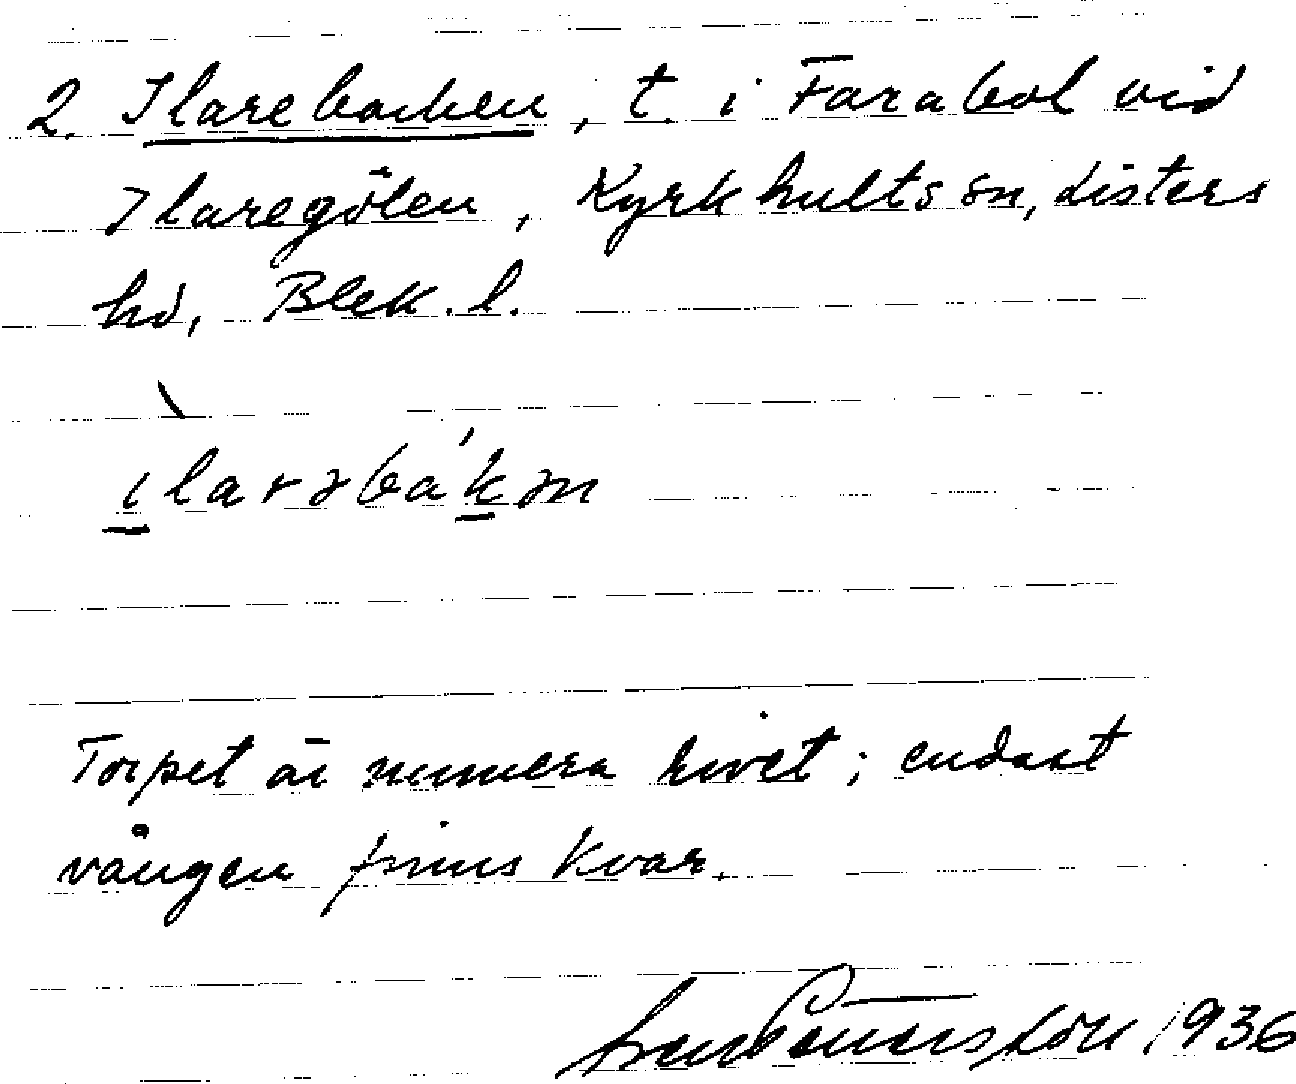 2. Ilarebacken, t. i Farabol vid
Ilaregölen, Kyrkhults sn, Listers
hd, Blek. l.
ilarəbákən
Torpet är numera rivet; endast
vången finns kvar.
1936